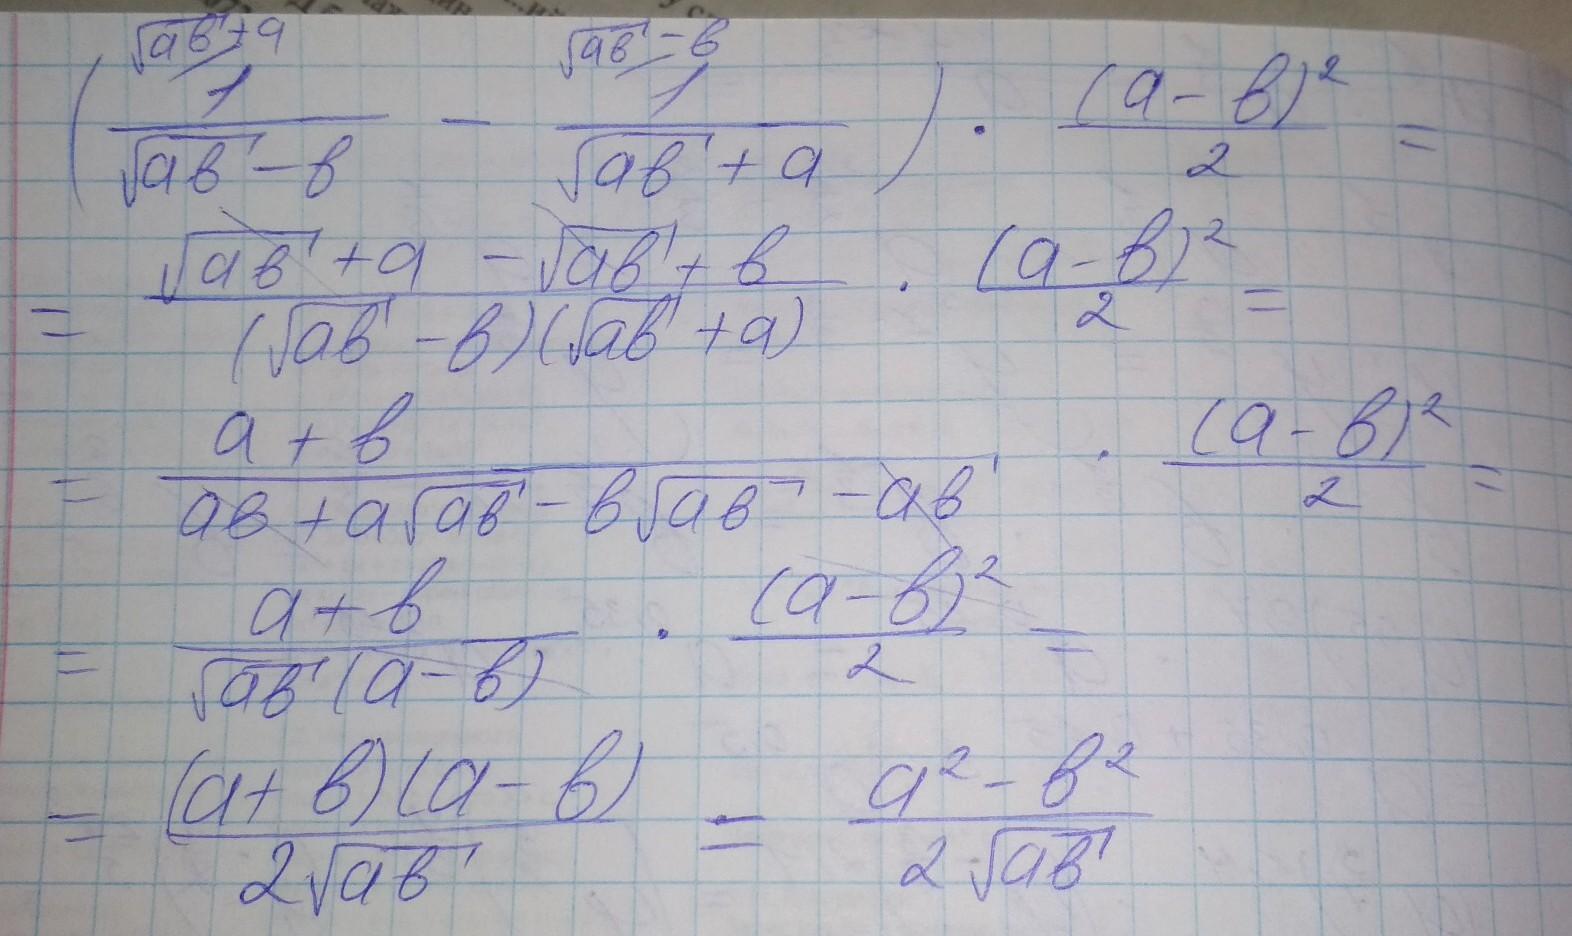 √ab + a √ab − b
( 1/(√ab − b) − 1/(√ab + a) ) · (a − b)²/2 =
= (√ab + a − √ab + b)/((√ab − b)(√ab + a)) · (a − b)²/2 =
= (a + b)/(ab + a√ab − b√ab − ab) · (a − b)²/2 =
= (a + b)/(√ab (a − b)) · (a − b)²/2 =
= (a + b)(a − b)/(2√ab) = (a² − b²)/(2√ab)